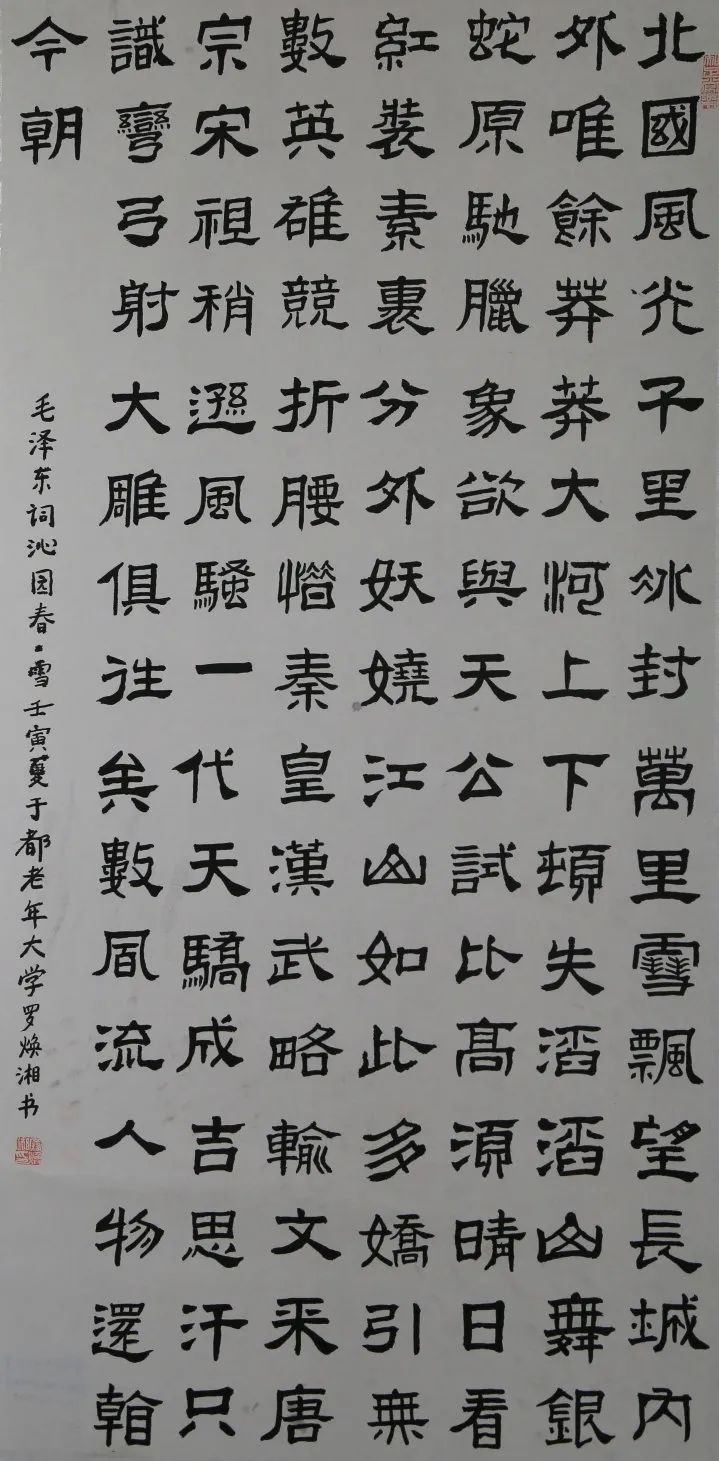 北國風光千里冰封萬里雪飄望長城內
外唯餘莽莽大河上下頓失滔滔山舞銀
蛇原馳臘象欲與天公試比高湏晴日看
紅裝素裹分外妖嬈江山如此多嬌引無
數英雄競折腰惜秦皇漢武略輸文采唐
宗宋祖稍遜風騷一代天驕成吉思汗只
識彎弓射大雕俱往矣數風流人物還看
今朝
毛泽东词沁园春·雪壬寅夏于都老年大学罗焕湘书